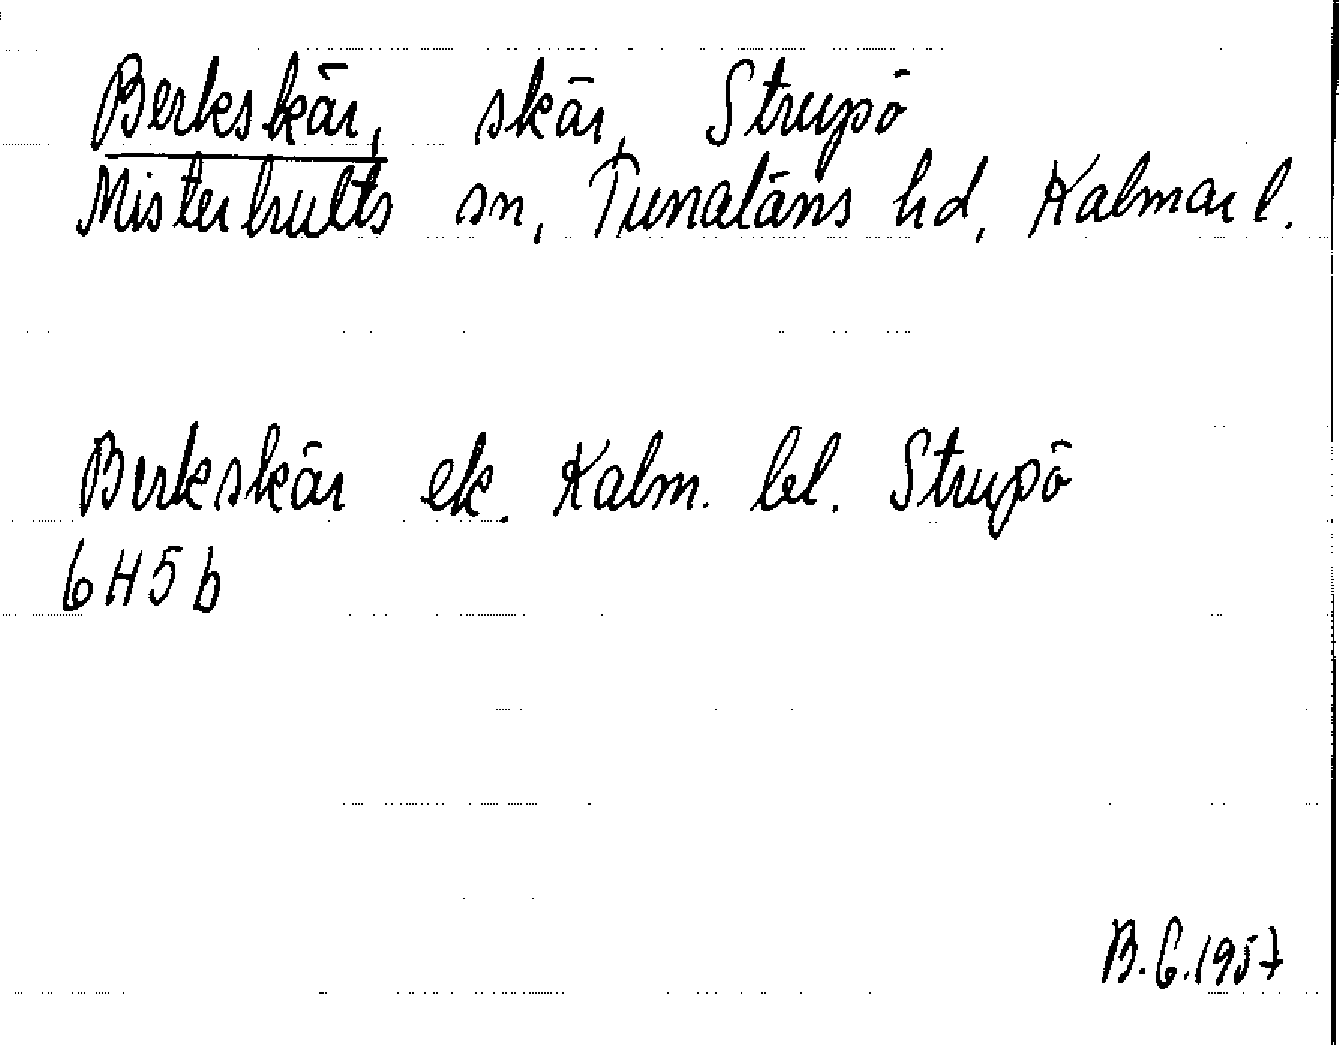 Berkskär, skär, Strupö
Misterhults sn, Tunaläns hd, Kalmar l.
Berkskär ek. Kalm. bl. Strupö
6H5b
B.G.1957